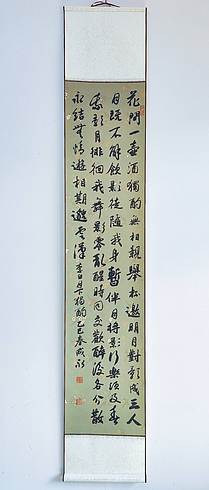 花間一壺酒獨酌無相親舉杯邀明月對影成三人
月既不解飲影徒隨我身暫伴月將影行樂須及春
我歌月徘徊我舞影零亂醒時同交歡醉後各分散
永結無情遊相期邈雲漢 李白月下獨酌 乙巳春